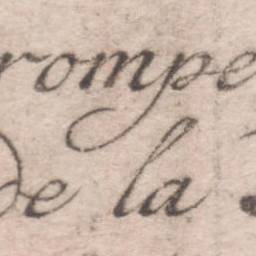 rompe
de la